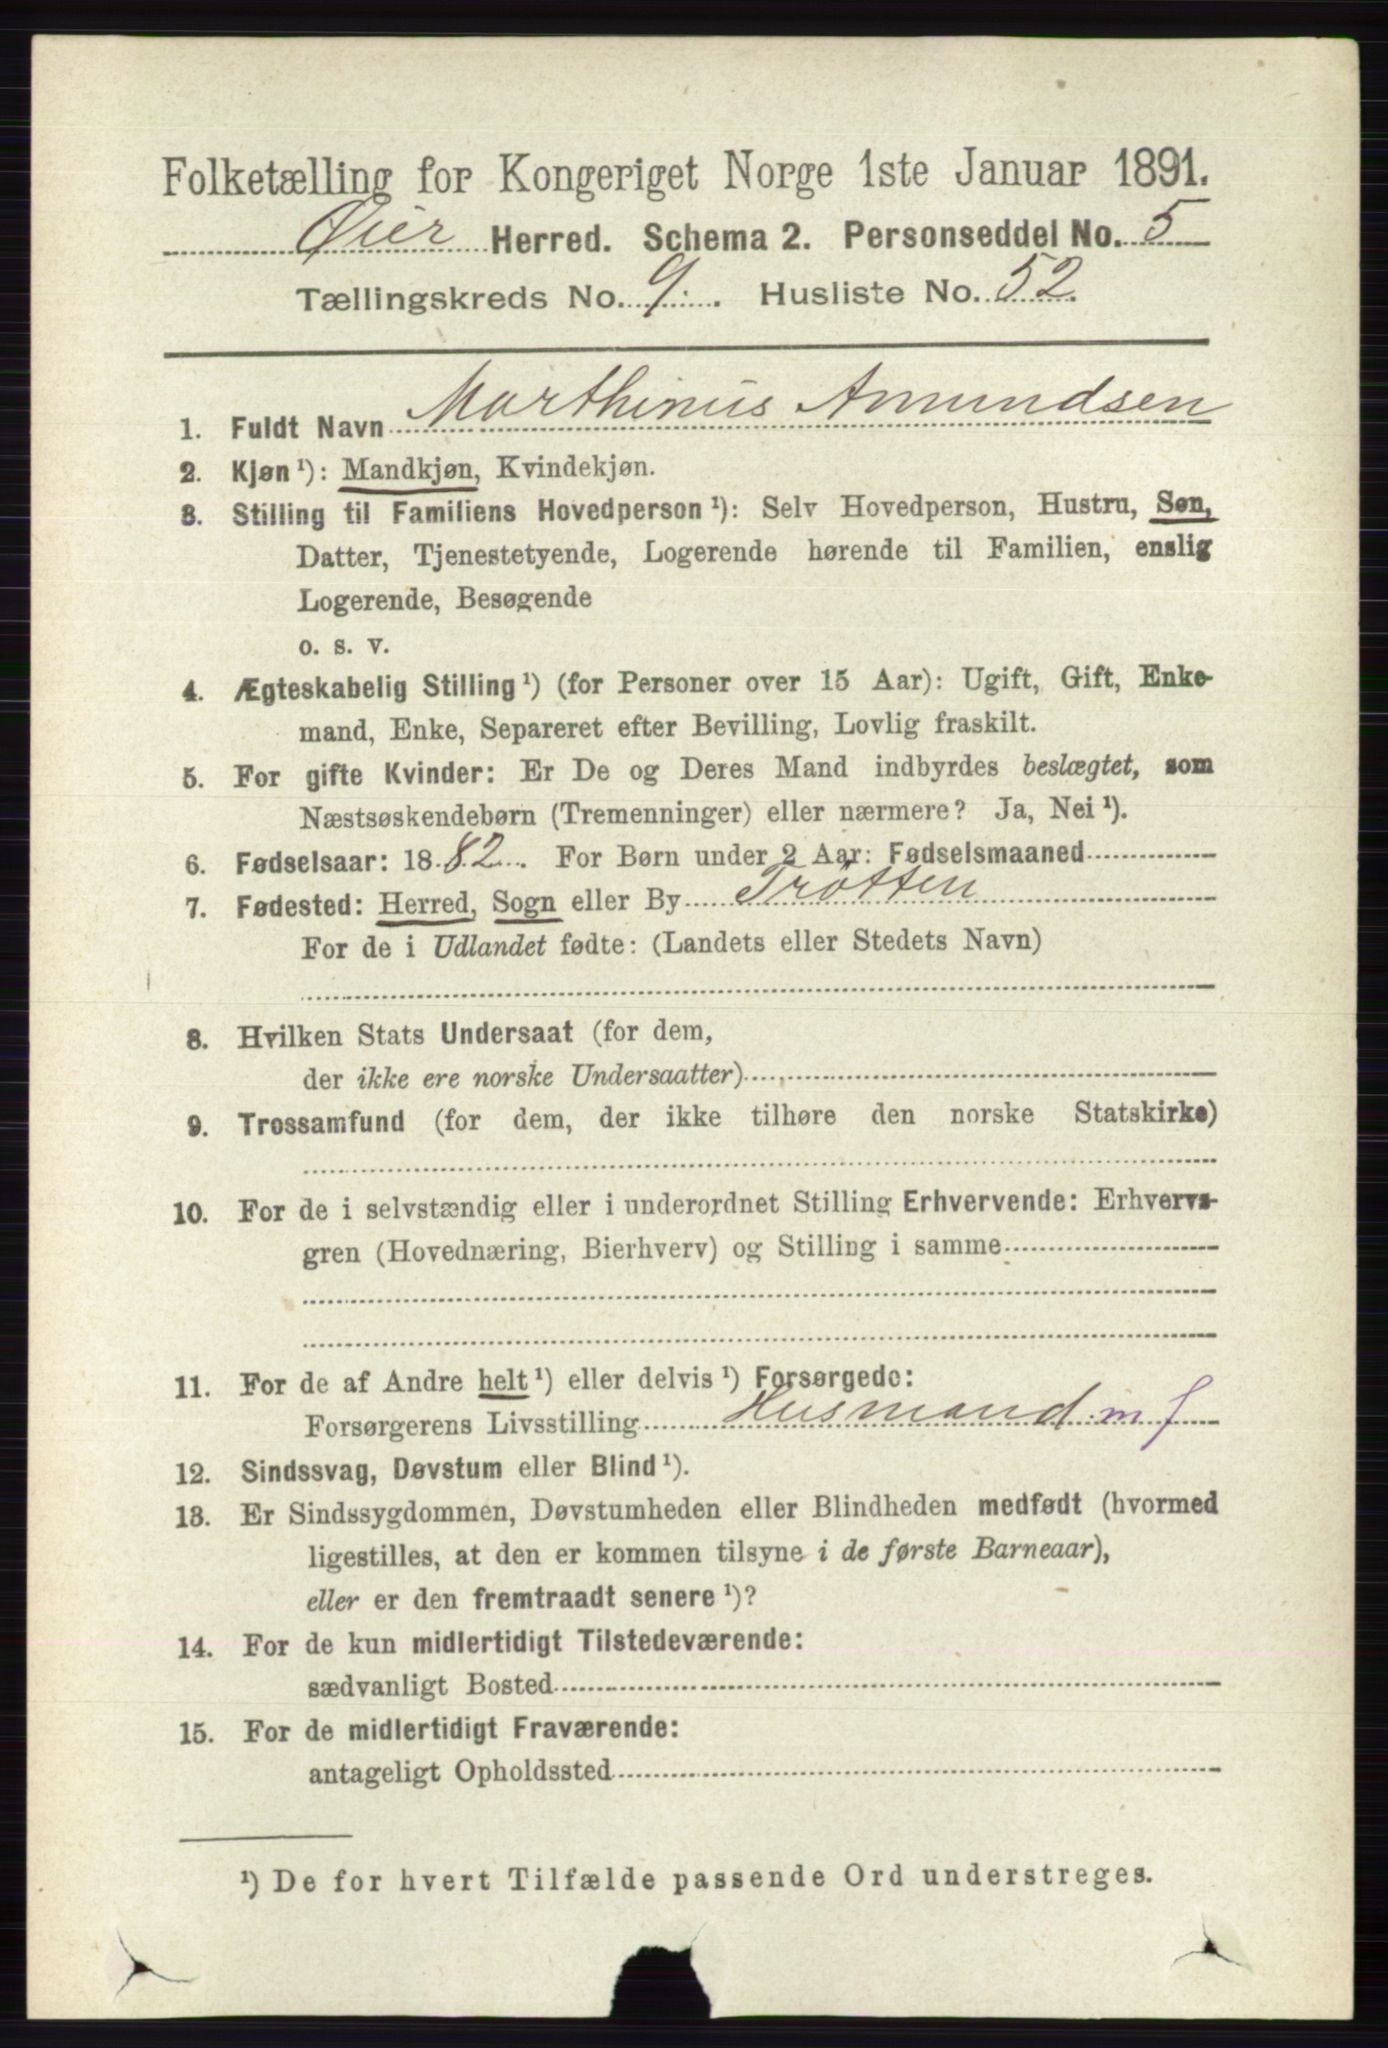 Folketælling for Kongeriget Norge 1ste Januar 1891.
Øier Herred. Schema 2. Personseddel No. 5
Tællingskreds No. 9. Husliste No. 52.
1. Fuldt Navn Marthinus Amundsen
2. Kjøn ¹): Mandkjøn, Kvindekjøn.
3. Stilling til Familiens Hovedperson ¹): Selv Hovedperson, Hustru, Søn,
Datter, Tjenestetyende, Logerende hørende til Familien, enslig
Logerende, Besøgende
o. s. v.
4. Ægteskabelig Stilling ¹) (for Personer over 15 Aar): Ugift, Gift, Enke-
mand, Enke, Separeret efter Bevilling, Lovlig fraskilt.
5. For gifte Kvinder: Er De og Deres Mand indbyrdes beslægtet, som
Næstsøskendebørn (Tremenninger) eller nærmere? Ja, Nei ¹).
6. Fødselsaar: 1882. For Børn under 2 Aar: Fødselsmaaned
7. Fødested: Herred, Sogn eller By Trötten
For de i Udlandet fødte: (Landets eller Stedets Navn)
8. Hvilken Stats Undersaat (for dem,
der ikke ere norske Undersaatter)
9. Trossamfund (for dem, der ikke tilhøre den norske Statskirke)
10. For de i selvstændig eller i underordnet Stilling Erhvervende: Erhvervs-
gren (Hovednæring, Bierhverv) og Stilling i samme
11. For de af Andre helt ¹) eller delvis ¹) Forsørgede:
Forsørgerens Livsstilling Husmand m f
12. Sindssvag, Døvstum eller Blind ¹).
13. Er Sindssygdommen, Døvstumheden eller Blindheden medfødt (hvormed
ligestilles, at den er kommen tilsyne i de første Barneaar),
eller er den fremtraadt senere ¹)?
14. For de kun midlertidigt Tilstedeværende:
sædvanligt Bosted
15. For de midlertidigt Fraværende:
antageligt Opholdssted
¹) De for hvert Tilfælde passende Ord understreges.